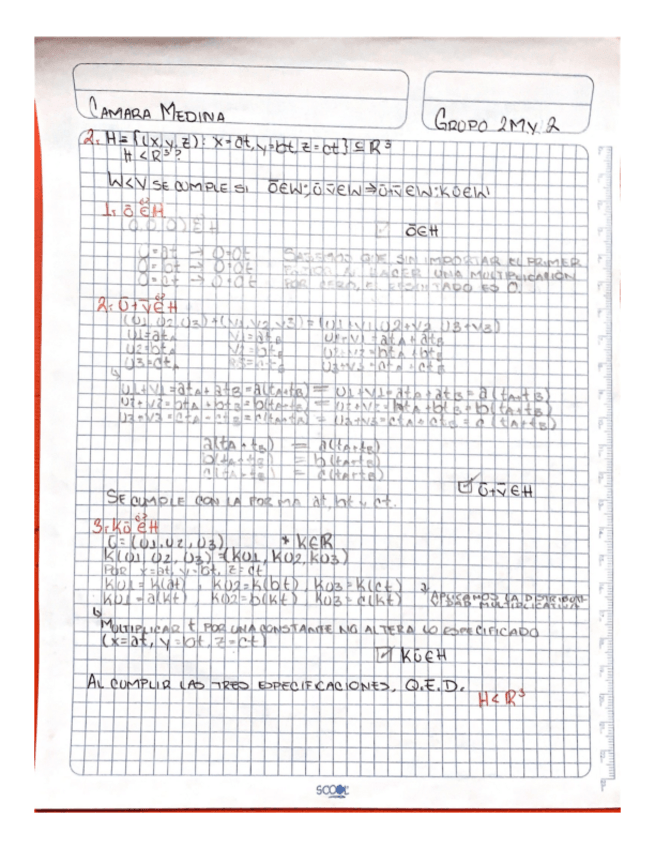 CAMARA MEDINA
GRUPO 2MV2
2. H = {(x,y,z): x=at, y=bt, z=ct} ⊆ R³
H < R³?
W<V SE CUMPLE SI ō∈W; ū v̄∈W ⇒ ū+v̄∈W; kū∈W
1. ō ∈ H
ō∈H
0=at → 0=0t SABEMOS QUE SIN IMPORTAR EL PRIMER
0=bt → 0=0t HACER UNA MULTIPLICACIÓN
0=ct → 0=0t POR CERO, EL RESULTADO ES 0.
2. ū+v̄ ∈ H
(U1, U2, U3)+(V1, V2, V3)=(U1+V1, U2+V2, U3+V3)
U1=atA V1=atB U1+V1=atA+atB
U2=btA V2=btB U2+V2=btA+btB
U3=ctA U3+V3=ctA+ctB
U1+V1=atA+atB=a(tA+tB) = U1+V1=atA+atB=a(tA+tB)
U2+V2=btA+btB=b(tA+tB) = U2+V2=btA+btB=b(tA+tB)
U3+V3=ctA+ctB=c(tA+tB) = U3+V3=ctA+ctB=c(tA+tB)
a(tA+tB) = a(tA+tB)
b(tA+tB) = b(tA+tB)
c(tA+tB) = c(tA+tB)
ū+v̄∈H
SE CUMPLE CON LA FORMA at, bt y ct.
3. kū ∈ H
ū=(U1,U2,U3) * K∈R
K(U1,U2,U3)=(KU1,KU2,KU3)
POR x=at, y=bt, z=ct
KU1=K(at), KU2=K(bt), KU3=K(ct)
KU1=a(kt), KU2=b(kt), KU3=c(kt) APLICAMOS LA
MULTIPLICATIVA
MULTIPLICAR t POR UNA CONSTANTE NO ALTERA LO ESPECIFICADO
(x=at, y=bt, z=ct)
kū∈H
AL CUMPLIR LAS TRES ESPECIFICACIONES, Q.E.D.
H<R³